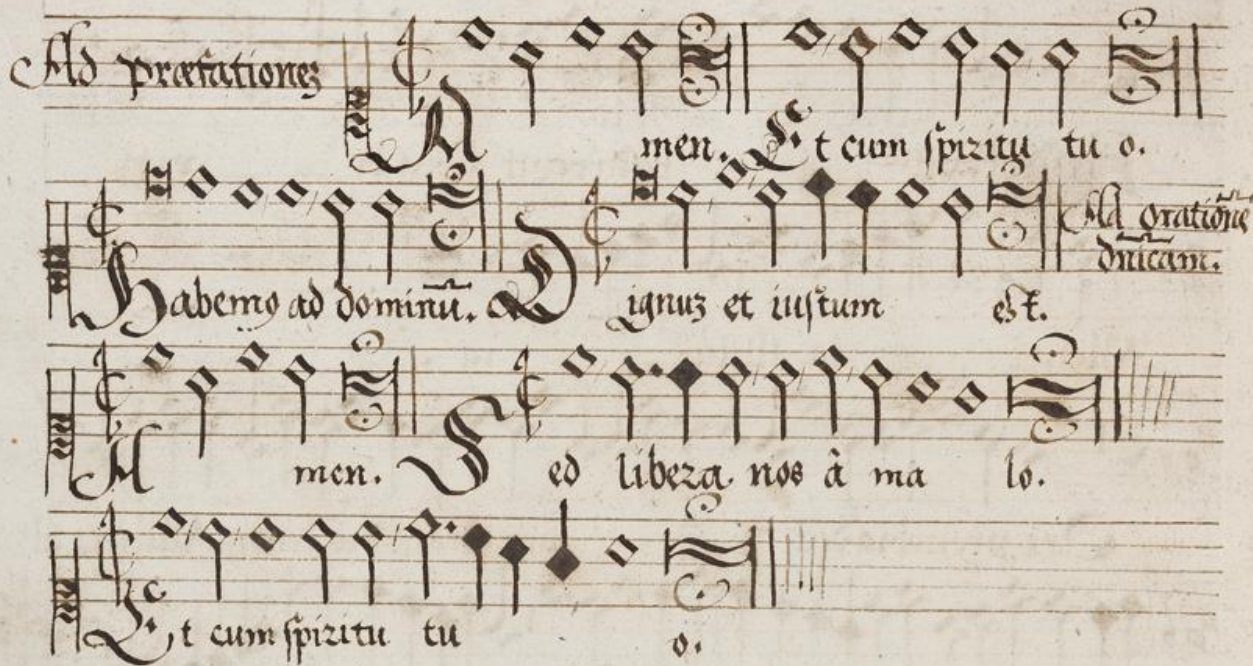 Ad præfationes
Amen. Et cum spiritu tuo.
Habemꝰ ad dominū. Dignuz et iustum est. Ad orationē
dn̄icam.
Amen. Sed libera nos à malo.
Et cum spiritu tuo.